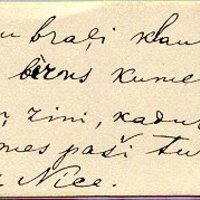 u braļi klau
bērns kume
zini, kadu
mes paši tu
Nice.